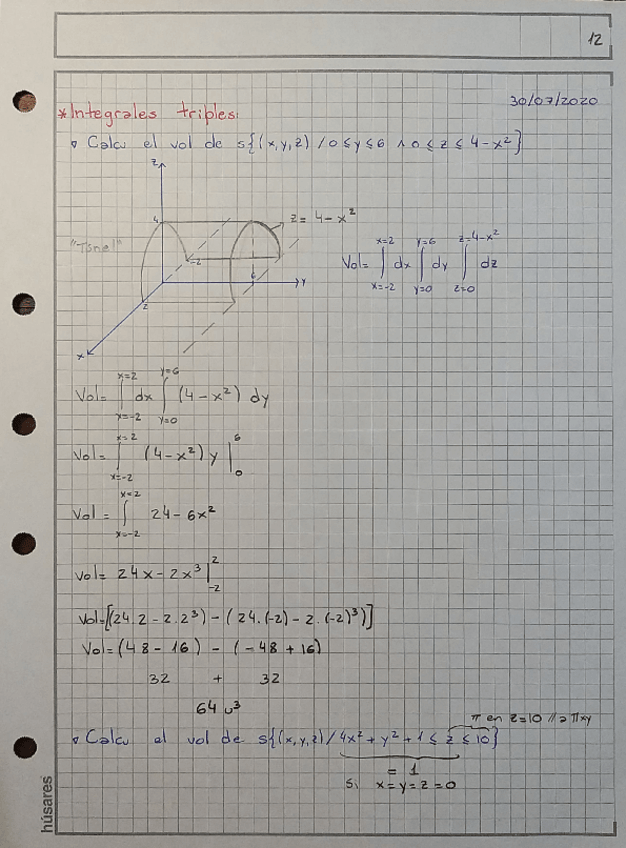 12
30/07/2020
*Integrales triples
Calcu el vol de s{(x,y,z) / 0 ≤ y ≤ 6 ∧ 0 ≤ z ≤ 4-x²}
z
4
z = 4-x²
-2
6
y
2
x
Vol= ∫ₓ₌₋₂ˣ⁼² dx ∫ᵧ₌₀ʸ⁼⁶ dy ∫_{z=0}^{z=4-x²} dz
Vol= ∫ₓ₌₋₂ˣ⁼² dx ∫ᵧ₌₀ʸ⁼⁶ (4-x²) dy
Vol= ∫ₓ₌₋₂ˣ⁼² (4-x²) y |₀⁶
Vol = ∫ₓ₌₋₂ˣ⁼² 24-6x²
Vol= 24x-2x³ |₋₂²
Vol=[(24.2-2.2³) - (24.(-2)-2.(-2)³)]
Vol=(48-16) - (-48+16)
32 + 32
64 u³
π en z=10 // a πxy
Calcu el vol de s{(x,y,z) / 4x²+y²+1 ≤ z ≤ 10}
= 1
Si x=y=z=0
húsares